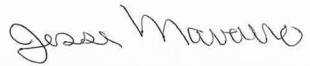 Jesse Navarro